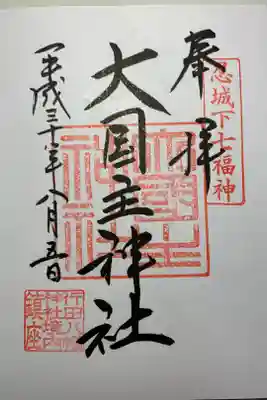 忍城下七福神
奉拝
大国主神社
平成三十年八月
行田八幡
神社境内
鎮座